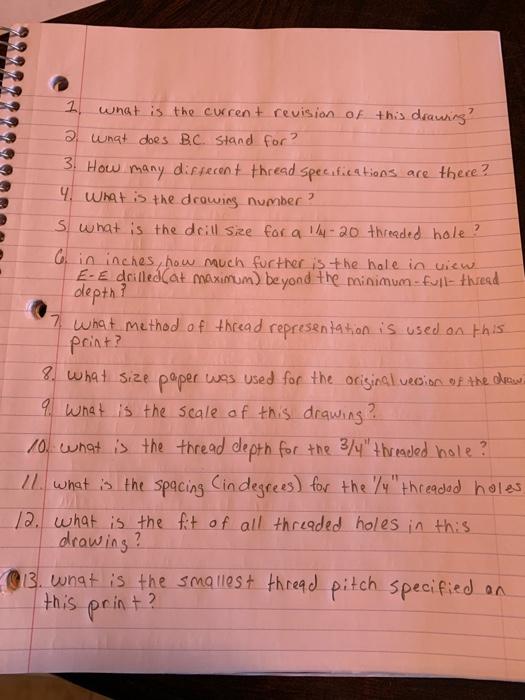 1. what is the current revision of this drawing?
2. what does B.C. stand for?
3. How many different thread specifications are there?
4. what is the drawing number?
5. what is the drill size for a 1/4-20 threaded hole?
6. in inches, how much further is the hole in view
E-E drilled (at maximum) beyond the minimum-full-thread
depth?
7. what method of thread representation is used on this
print?
8. what size paper was used for the original version of the
9. what is the scale of this drawing?
10. what is the thread depth for the 3/4" threaded hole?
11. what is the spacing (in degrees) for the 1/4" threaded holes
12. what is the fit of all threaded holes in this
drawing?
13. what is the smallest thread pitch specified on
this print?